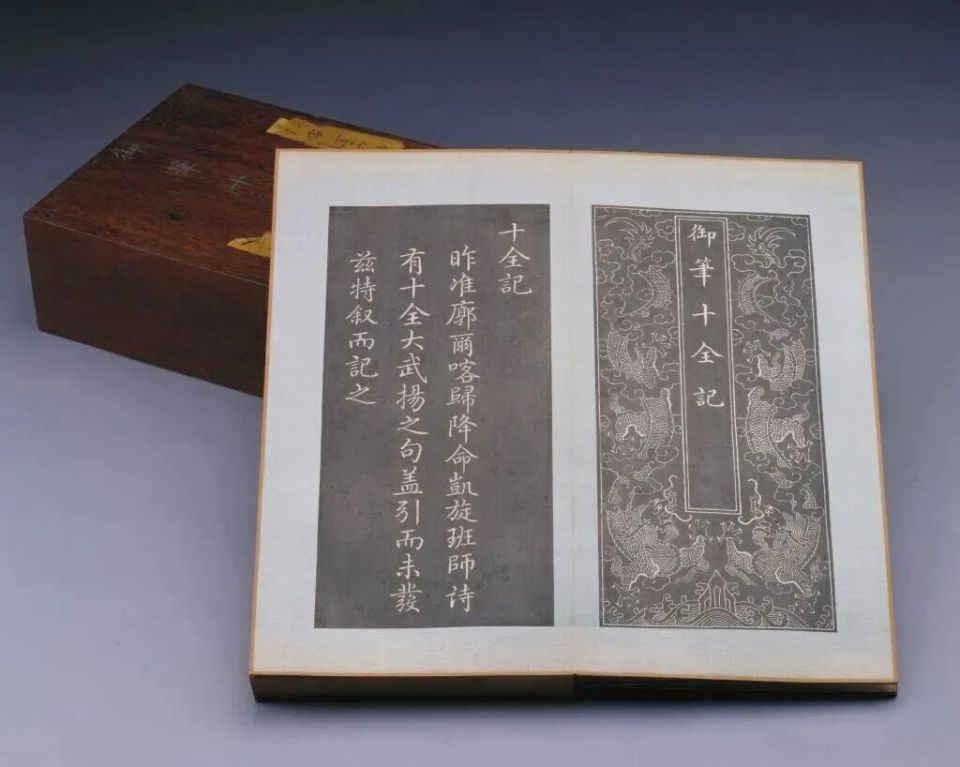 御筆十全記
十全記
昨准廓爾喀歸降命凱旋班師詩
有十全大武揚之句盖引而未發
兹特叙而記之
御筆十